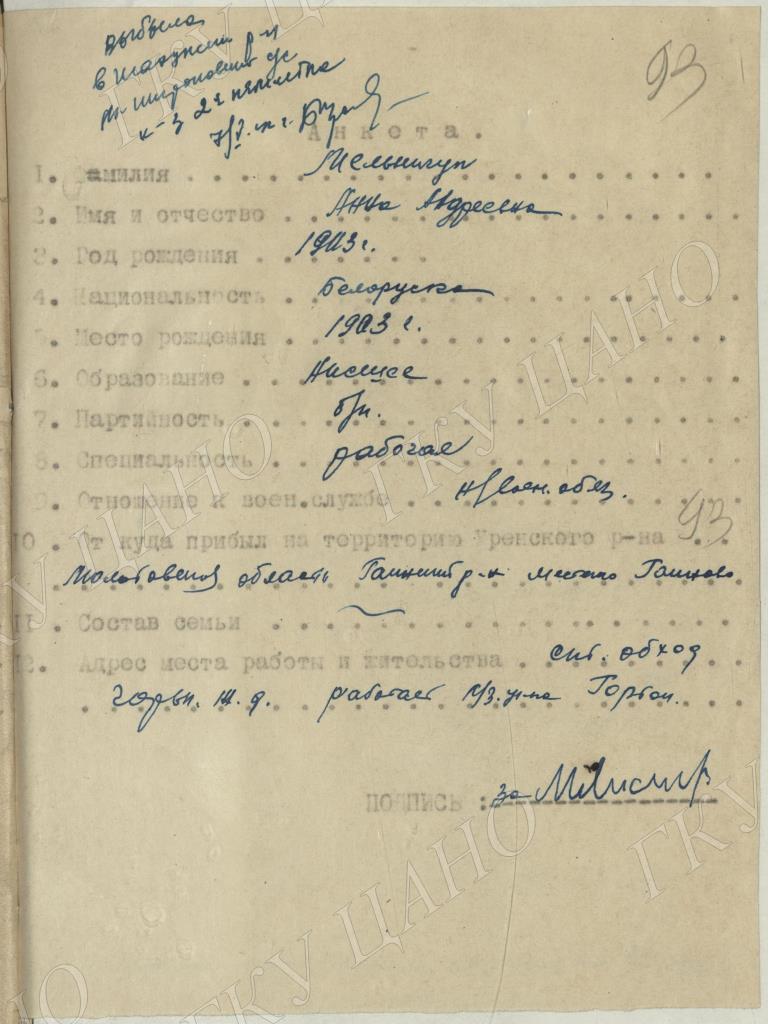 выбыла
в Шахунский р-н
с/с
к-з 2я пятилетка
93
Анкета.
1. Фамилия . . . Мельничук
2. Имя и отчество . . Анна Андреевна
3. Год рождения . . . 1903 г.
4. Национальность . Белоруска
5. Место рождения . . 1903 г.
6. Образование . . . Низшее
7. Партийность . . . б/п.
8. Специальность . . рабочая
9. Отношение к воен.службе . . . н/воен. обяз.
10. От куда прибыл на территорию Уренского р-на . . . 93
Молотовской область р-н местечко
11. Состав семьи . . . —
12. Адрес места работы и жительства . обход
Горьк. ж. д. работает
ПОДПИСЬ : за